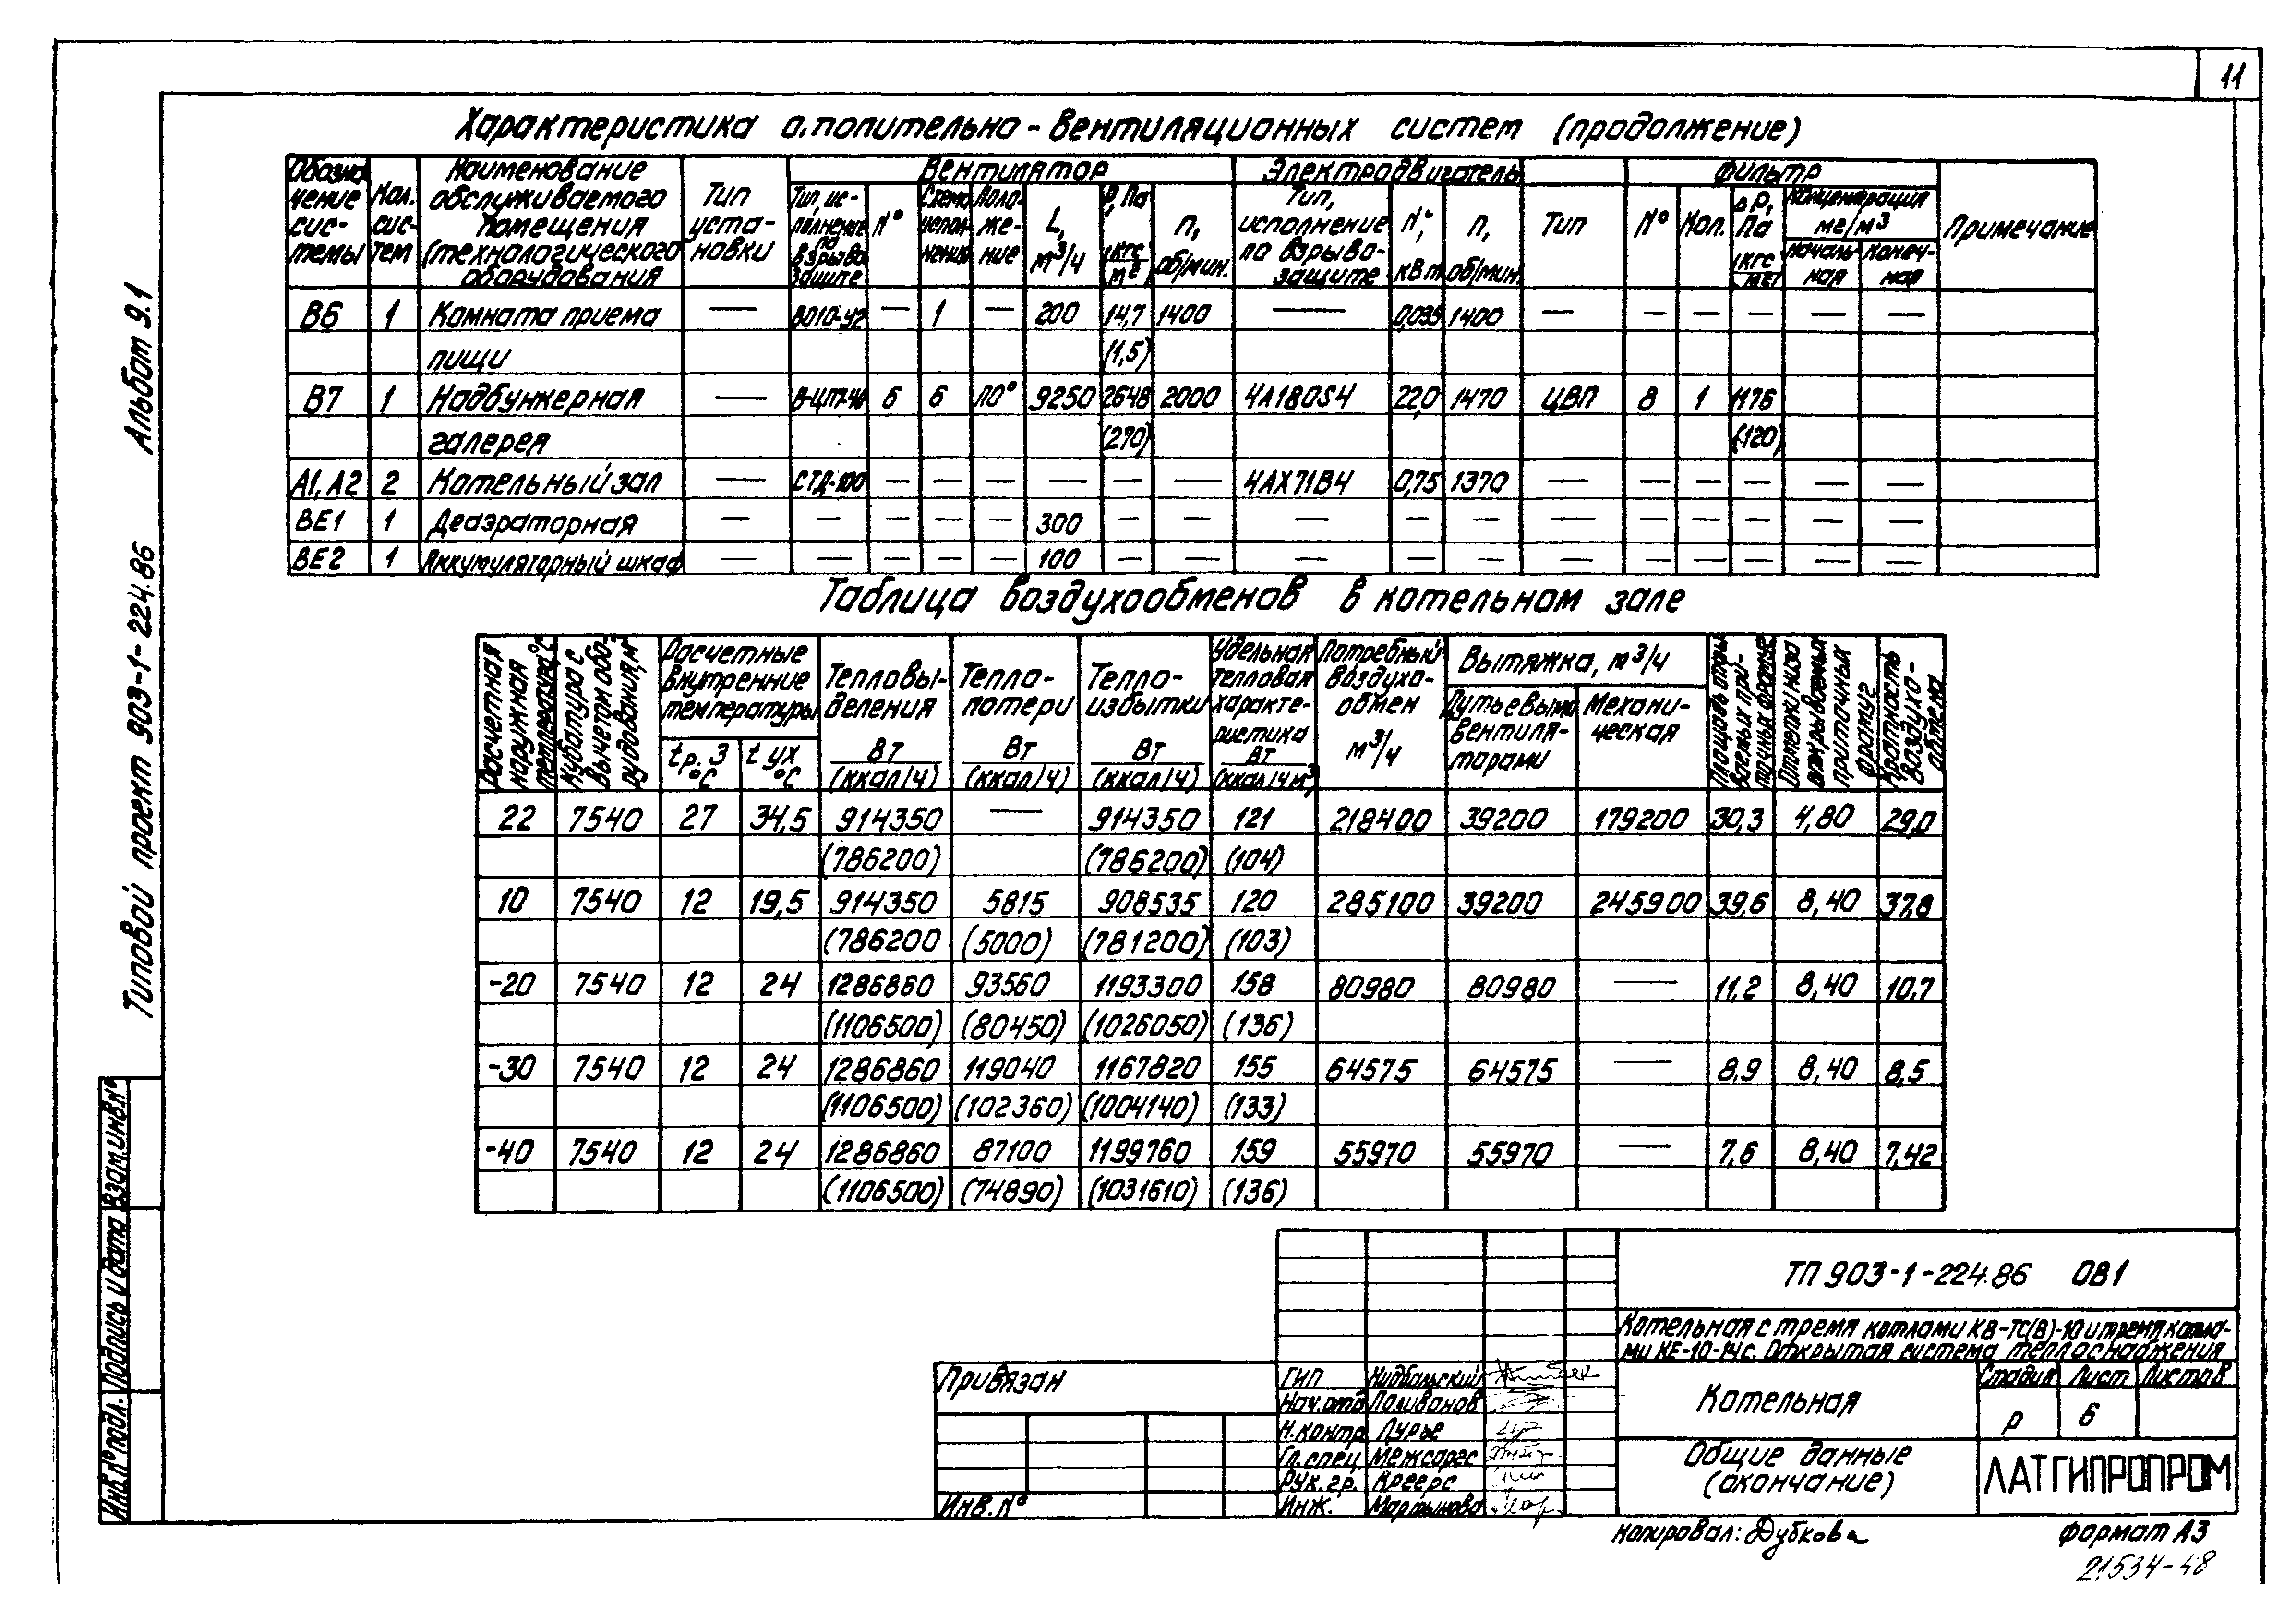 11
Характеристика отопительно-вентиляционных систем (продолжение)
Обозначение системы | Кол. систем | Наименование обслуживаемого помещения (технологического оборудования | Тип установки | Вентилятор | Электродвигатель | Фильтр | Примечание
Тип, исполнение по взрывозащите | N° | Схема исполнения | Положение | L, м³/ч | P, Па (кгс/м²) | n, об/мин. | Тип, исполнение по взрывозащите | N, кВт | n, об/мин. | Тип | N° | Кол. | ΔP, Па (кгс/м²) | Концентрация мг/м³ | начальная | конечная
В6 | 1 | Комната приема | — | ВО10-У2 | — | 1 | — | 200 | 14,7 | 1400 | — | 0,035 | 1400 | — | — | — | — | — | —
пищи | (1,5)
В7 | 1 | Надбункерная | — | В-ЦП7-40 | 6 | 6 | Л0° | 9250 | 2648 | 2000 | 4А180S4 | 22,0 | 1470 | ЦВП | 8 | 1 | 1176
галерея | (270) | (120)
А1, А2 | 2 | Котельный зал | — | СТД-100 | — | — | — | — | — | — | 4АХ71В4 | 0,75 | 1370 | — | — | — | — | — | —
ВЕ1 | 1 | Деаэраторная | — | — | — | — | — | 300 | — | — | — | — | — | — | — | — | — | — | —
ВЕ2 | 1 | Аккумуляторный шкаф | — | — | — | — | — | 100 | — | — | — | — | — | — | — | — | — | — | —
Таблица воздухообменов в котельном зале
Расчетная наружная температура °С | Кубатура с вычетом оборудования, м³ | Расчетные внутренние температуры | Тепловыделения Вт (ккал/ч) | Теплопотери Вт (ккал/ч) | Теплоизбытки Вт (ккал/ч) | Удельная тепловая характеристика Вт (ккал/ч м³) | Потребный воздухообмен м³/ч | Вытяжка, м³/ч | Площадь открываемых приточных фрамуг | Отметки низа открываемых приточных фрамуг | Кратность воздухообмена
tр.з °С | tух °С | Дутьевыми вентиляторами | Механическая
22 | 7540 | 27 | 34,5 | 914350 | — | 914350 | 121 | 218400 | 39200 | 179200 | 30,3 | 4,80 | 29,0
(786200) | (786200) | (104)
10 | 7540 | 12 | 19,5 | 914350 | 5815 | 908535 | 120 | 285100 | 39200 | 245900 | 39,6 | 8,40 | 37,8
(786200 | (5000) | (781200) | (103)
-20 | 7540 | 12 | 24 | 1286860 | 93560 | 1193300 | 158 | 80980 | 80980 | — | 11,2 | 8,40 | 10,7
(1106500) | (80450) | (1026050) | (136)
-30 | 7540 | 12 | 24 | 1286860 | 119040 | 1167820 | 155 | 64575 | 64575 | — | 8,9 | 8,40 | 8,5
(1106500) | (102360) | (1004140) | (133)
-40 | 7540 | 12 | 24 | 1286860 | 87100 | 1199760 | 159 | 55970 | 55970 | — | 7,6 | 8,40 | 7,42
(1106500) | (74890) | (1031610) | (136)
Альбом 9.1
Типовой проект 903-1-224.86
Взам.инв.N°
Подпись и дата
Инв.N°подл.
ТП 903-1-224.86 ОВ1
Котельная с тремя котлами КВ-ТС(В)-10 и тремя котла-
ми КЕ-10-14с. Открытая система теплоснабжения
Привязан
Инв.N°
ГИП
Нач.отд Поливанов
Н.контр Лурье
Гл.спец.
Рук.гр. Креерс
Инж. Мартынова
Котельная
Стадия Лист Листов
Р 6
Общие данные
(окончание)
ЛАТГИПРОПРОМ
копировал: Дубкова
Формат А3
21534-48